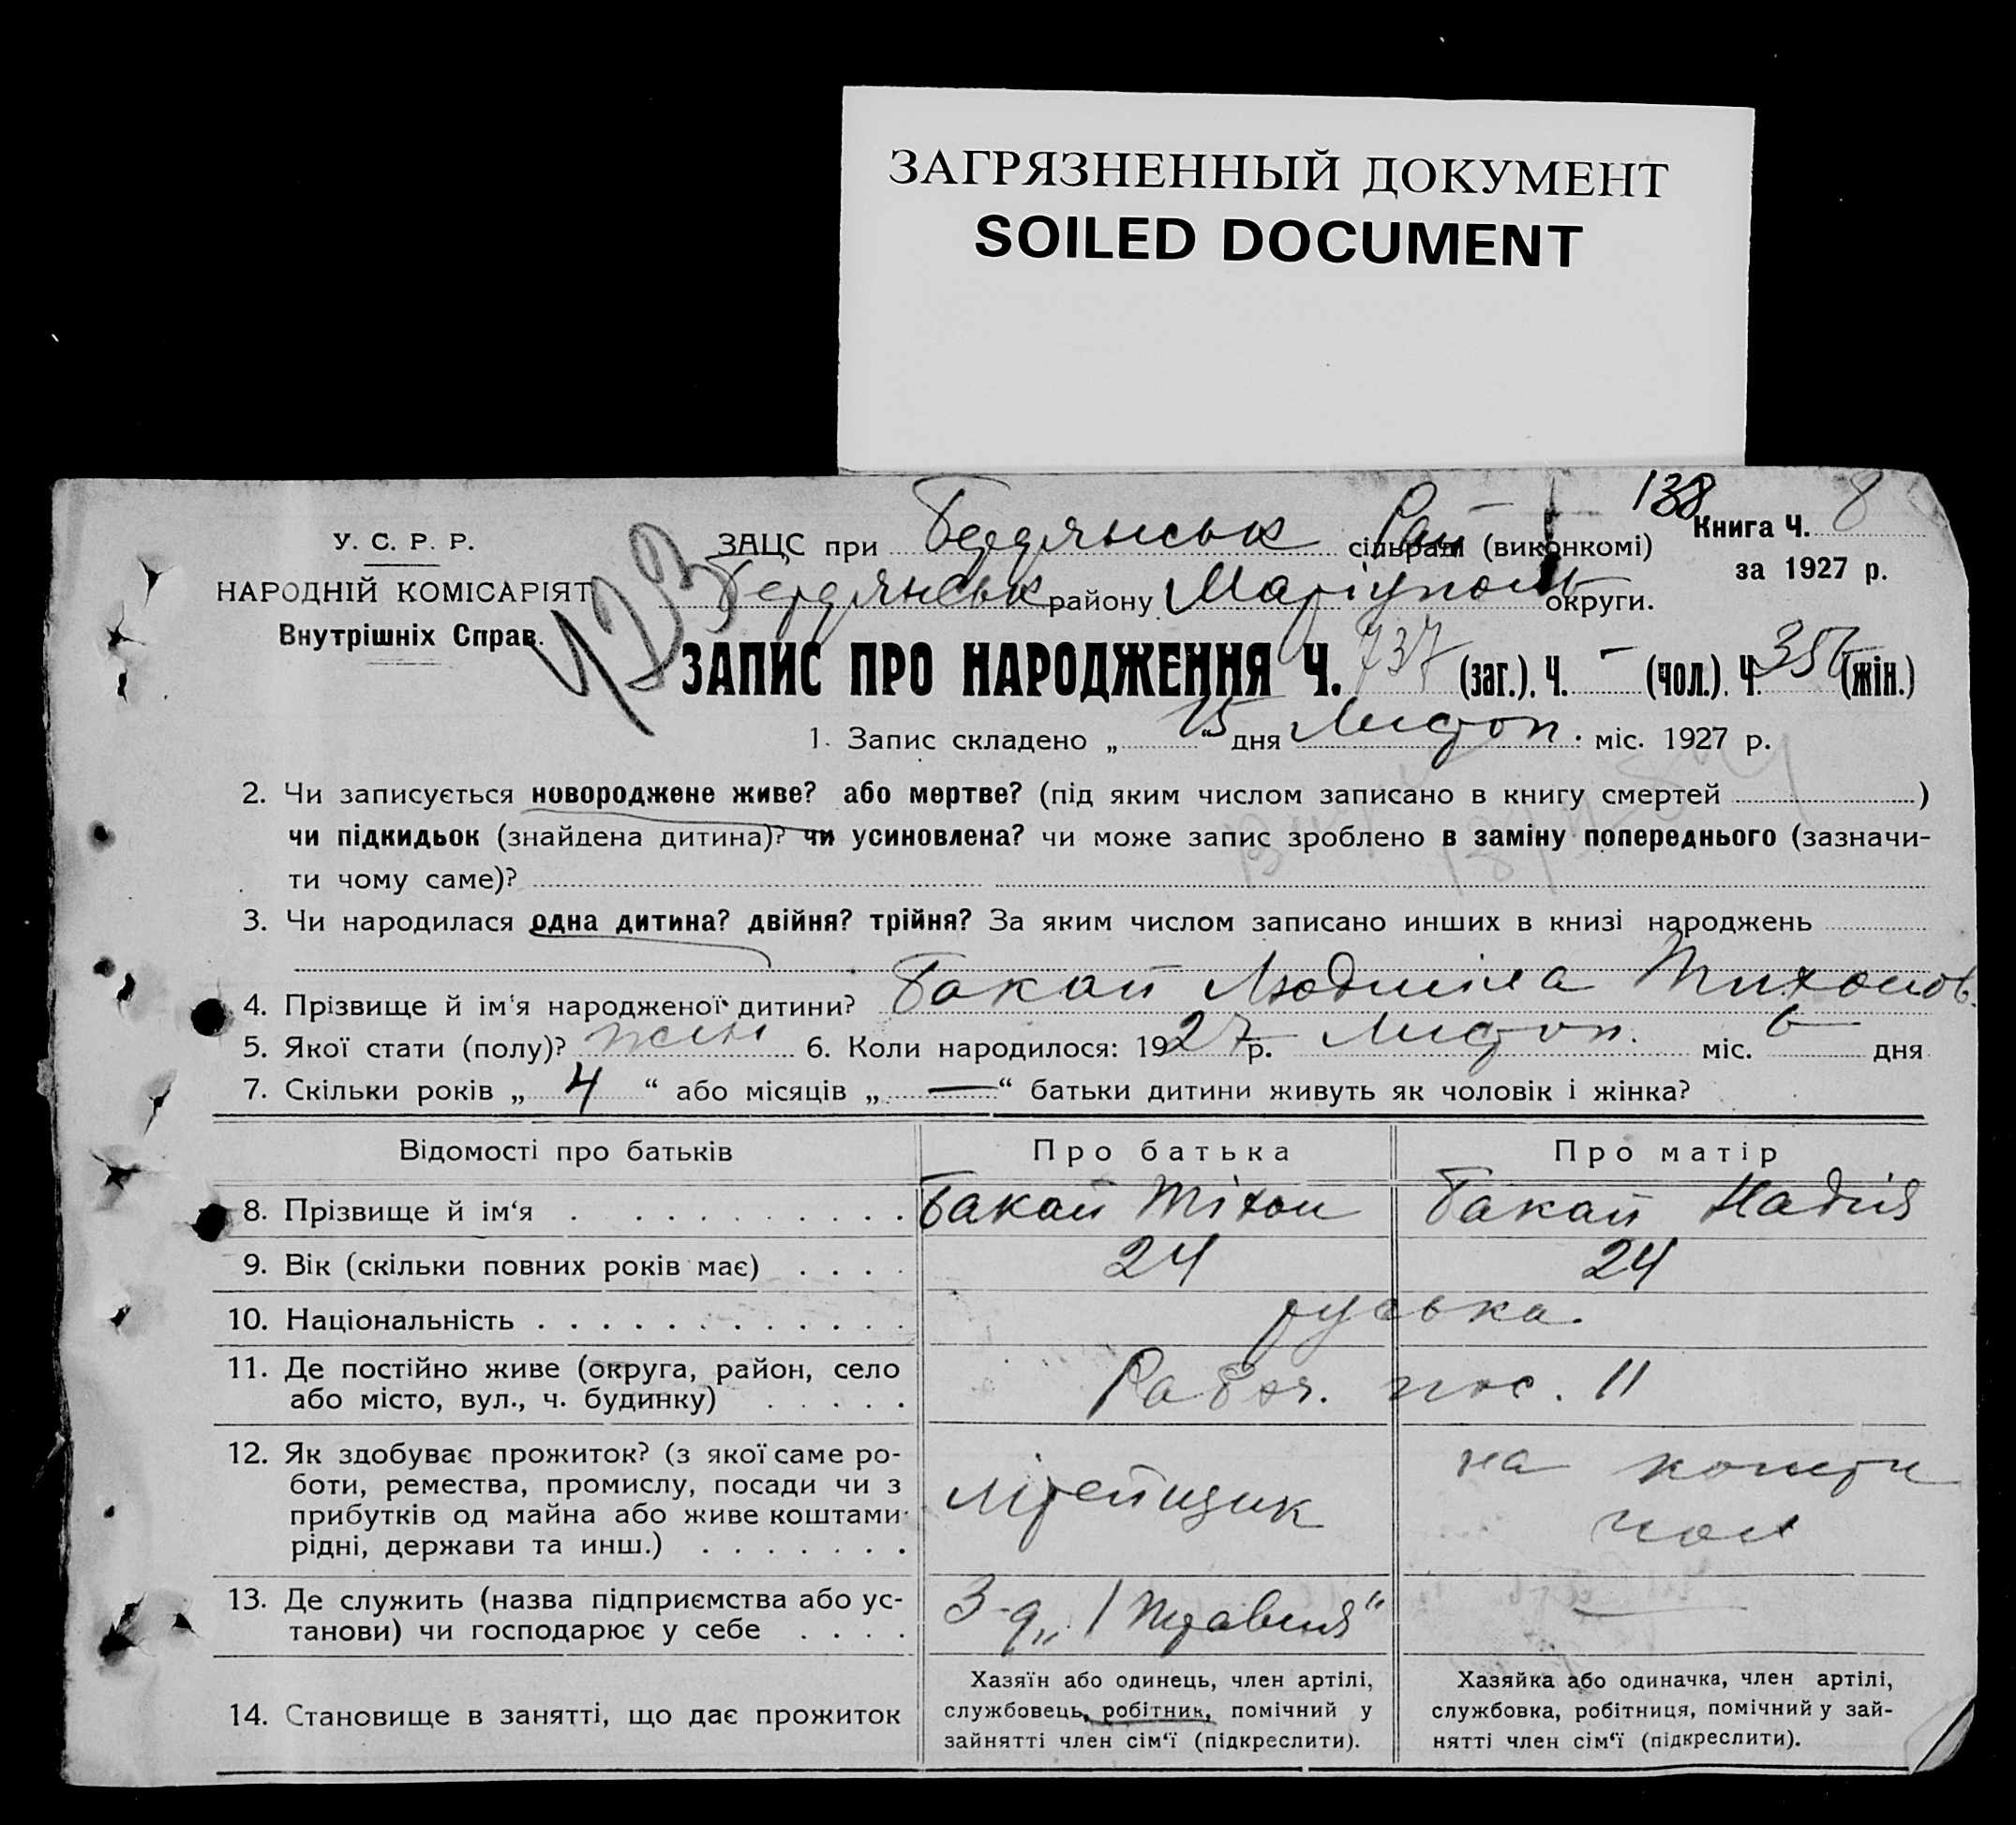 ЗАГРЯЗНЕННЫЙ ДОКУМЕНТ
SOILED DOCUMENT
138
У. С. Р. Р.
НАРОДНІЙ КОМІСАРІЯТ
Внутрішніх Справ.
ЗАЦС при Бердянськ Рай сільраді (виконкомі)
Книга Ч. 8
за 1927 р.
Бердянськ району Маріуполь округи.
ЗАПИС ПРО НАРОДЖЕННЯ Ч. 737 (заг.). Ч. - (чол.). Ч. 356 (жін.)
1. Запис складено „ 15 “ дня Листоп. міс. 1927 р.
2. Чи записується новороджене живе? або мертве? (під яким числом записано в книгу смертей )
чи підкидьок (знайдена дитина)? чи усиновлена? чи може запис зроблено в заміну попереднього (зазначи-
ти чому саме)?
3. Чи народилася одна дитина? двійня? трійня? За яким числом записано инших в книзі народжень
4. Прізвище й ім‘я народженої дитини? Бакай Людміла Тихонов.
5. Якої стати (полу)? жін 6. Коли народилося: 1927 р. Листоп. міс. 6 дня
7. Скільки років „ 4 “ або місяців „ — “ батьки дитини живуть як чоловік і жінка?
Відомості про батьків Про батька Про матір
8. Прізвище й ім‘я . . . . . . . . . . Бакай Тіхон Бакай Надія
9. Вік (скільки повних років має) . . . . 24 24
10. Національність . . . . . . . . . . . . . руська.
11. Де постійно живе (округа, район, село
або місто, вул., ч. будинку) . . . . . Рабоч. пос. 11
12. Як здобуває прожиток? (з якої саме ро-
боти, ремества, промислу, посади чи з
прибутків од майна або живе коштами
рідні, держави та инш.) . . . . . . .
літейщик
на кошти
чол
13. Де служить (назва підприємства або ус-
танови) чи господарює у себе . . . .
З-д „1 Травня“ —
14. Становище в занятті, що дає прожиток
Хазяїн або одинець, член артілі,
службовець, робітник, помічний у
зайнятті член сім‘ї (підкреслити).
Хазяйка або одиначка, член артілі,
службовка, робітниця, помічний у зай-
нятті член сім‘ї (підкреслити).